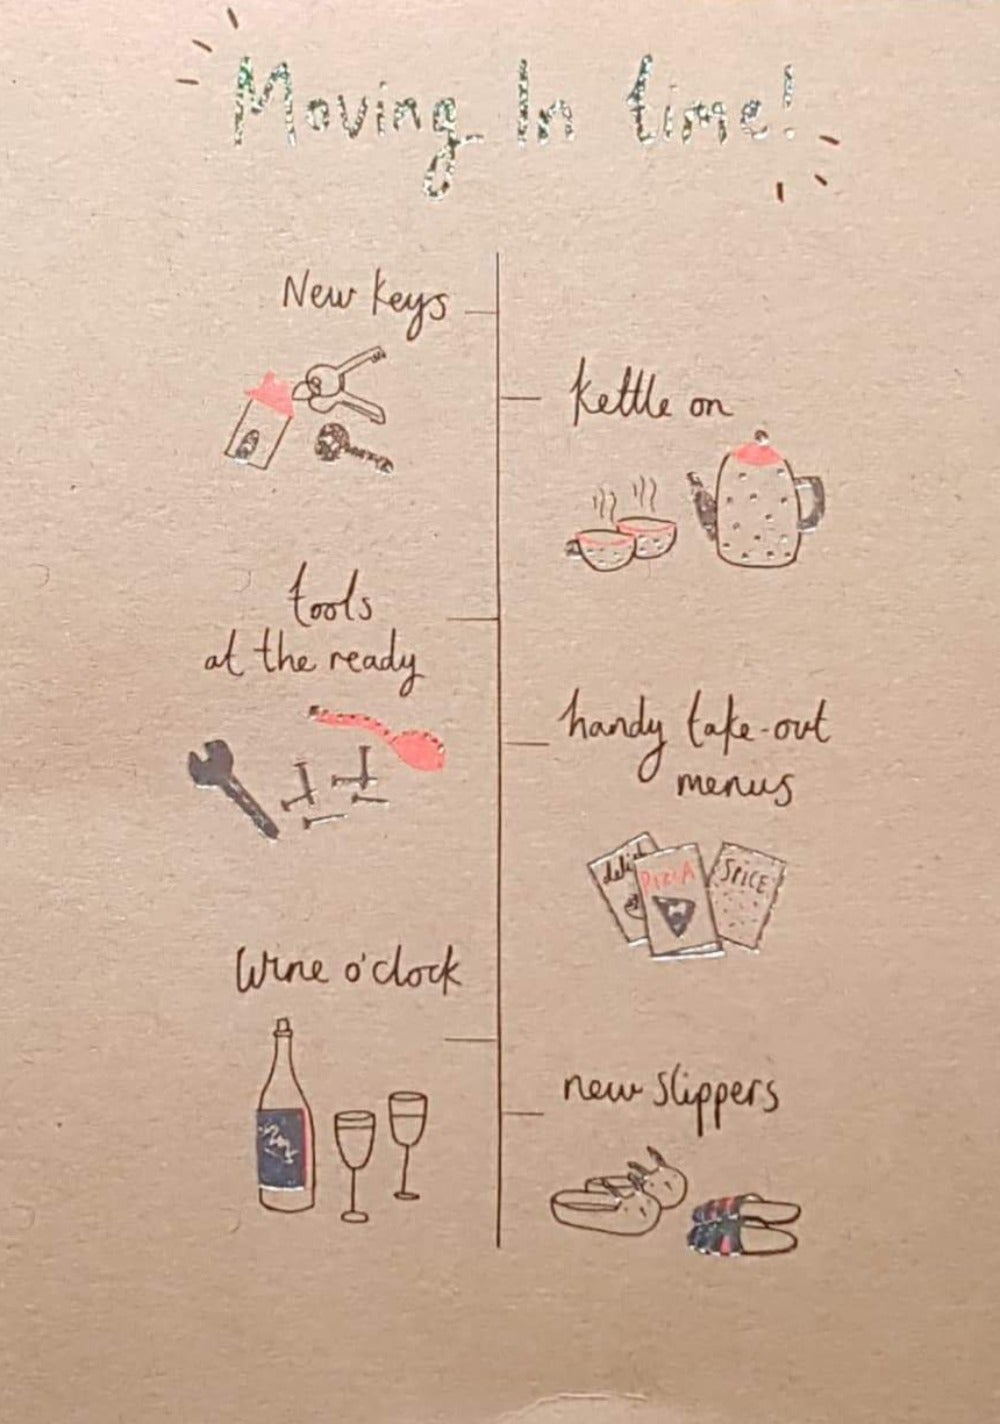 Moving In time!
New keys
kettle on
tools
at the ready
handy take-out
menus
PIZZA
SPICE
Wine o'clock
new slippers